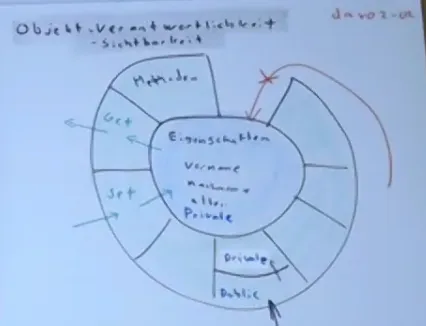 Objekt-Verantwortlichkeit
- Sichtbarkeit
Methoden
Get
Set
Eigenschaften
Vorname
nachname
alter
Private
Private
Public